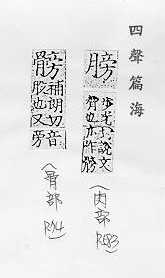 四聲篇海
膀
步光切說文
脅也亦作髈
(肉部
髈補朗切音
股也又旁
(骨部